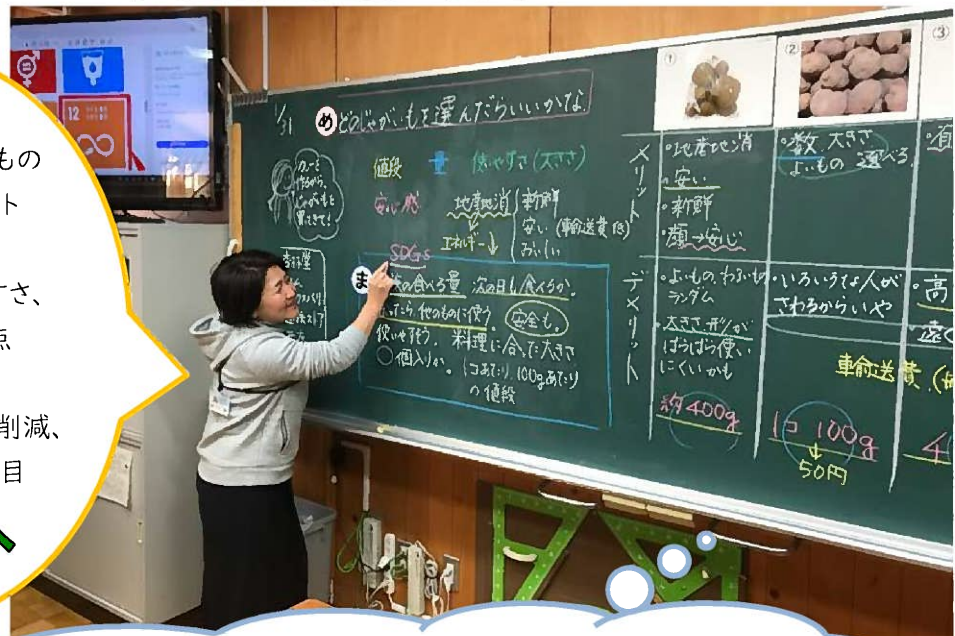 もの
ト
すさ、
点
削減、
目
12
1/31
め どのじゃがいもを選んだらいいかな。
カレーを
作るから、
じゃがいもを
買ってきて!
値段 量 使いやすさ(大きさ)
安心感 地産地消 新鮮
安い(輸送費低)
おいしい
エネルギー↓
SDGs
ま
次の食べる量 次の日も食べるか。
他のものに使う。 安全も。
使いやすそう。 料理に合った大きさ
○個入りか。 1コあたり、100gあたり
の値段
①
②
③
メリット
・地産地消
・安い
・新鮮
・顔→安心
・数、大きさ
よいもの 選べる。
デメリット
・よいもの、わるいもの
ランダム
・大きさ、形が
ばらばら使い
にくいかも
約400g
・いろいろな人が
さわるからいや
1コ 100g
↓
50円
・高
・遠く
輸送費
4